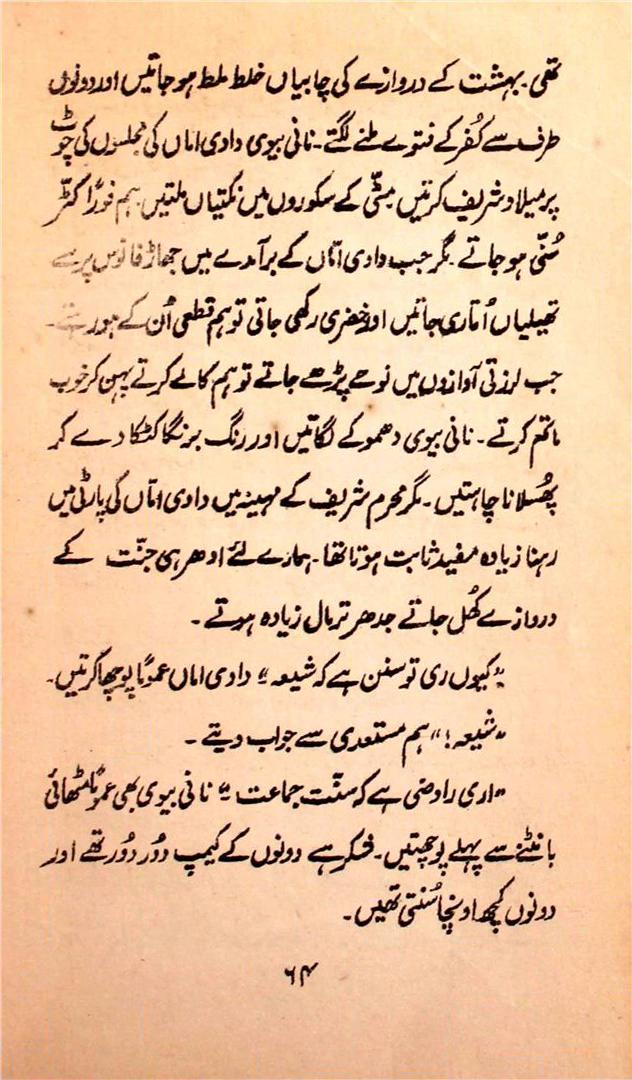 تھی۔ بہشت کے دروازے کی چابیاں خلط ملط ہو جاتیں اور دونوں
طرف سے کُفر کے فتوے ملنے لگتے۔ نانی بیوی دادی اماں کی مجلسوں کی چوٹ
پر میلاد شریف کرتیں مٹّی کے سکوروں میں نکتیاں ملتیں ہم فورًا کٹّر
سُنّی ہو جاتے۔ مگر جب دادی امّاں کے برآمدے میں جھاڑ فانوس پر سے
تھیلیاں اُتاری جاتیں اور خضری رکھی جاتی تو ہم قطعی اُن کے ہو رہتے۔
جب لرزتی آوازوں میں نوحے پڑھے جاتے تو ہم کالے کرتے پہن کر خوب
ماتم کرتے۔ نانی بیوی دھموکے لگاتیں اور رنگ برنگا کٹکا دے کر
پھُسلانا چاہتیں۔ مگر محرم شریف کے مہینہ میں دادی امّاں کی پارٹی میں
رہنا زیادہ مفید ثابت ہوتا تھا۔ ہمارے لئے ادھر ہی جنّت کے
دروازے کھُل جاتے جدھر تر مال زیادہ ہوتے۔
"کیوں ری تو سنن ہے کہ شیعہ" دادی اماں عمومًا پوچھا کرتیں۔
"شیعہ!" ہم مستعدی سے جواب دیتے۔
"اری رادضی ہے کہ سنّت جماعت" نانی بیوی بھی عمومًا مٹھائی
بانٹنے سے پہلے پوچھتیں۔ شکر ہے دونوں کے کیمپ دُور دُور تھے اور
دونوں کچھ اونچا سُنتی تھیں۔
۶۴